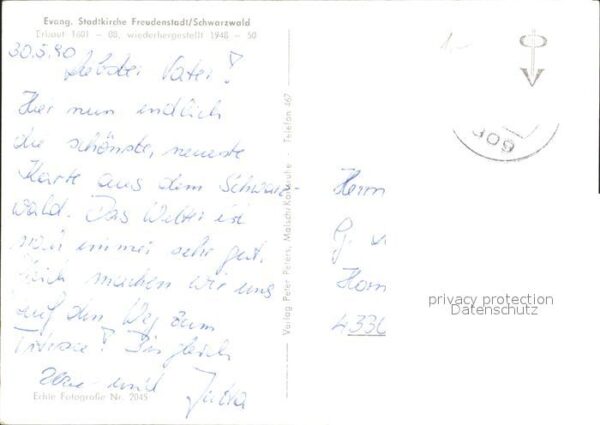 Evang. Stadtkirche Freudenstadt/Schwarzwald
Erbaut 1601 - 08, wiederhergestellt 1948 - 50
30.5.90
Liebster Vater!
Hier nun endlich
die schönste, neueste
Karte aus dem Schwarz-
wald. Das Wetter ist
noch immer sehr gut.
machen wir uns
auf den Weg zum
! Bis gleich
und
Echte Fotografie Nr. 2045
Verlag Peter Peters, Malsch/Karlsruhe - Telefon 467
GOP
Herrn
G.
Horn
433
privacy protection
Datenschutz